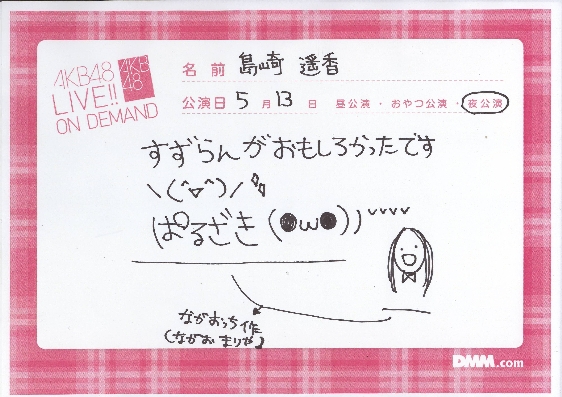 AKB48
LIVE!!
ON DEMAND
AKB
48
名前 島崎 遥香
公演日 5 月 13 日 昼公演・おやつ公演・夜公演
すずらんがおもしろかったです
\(^▽^)/
ぱるざき (●ω●))
ながおっち作
(ながお まりや)
DMM.com